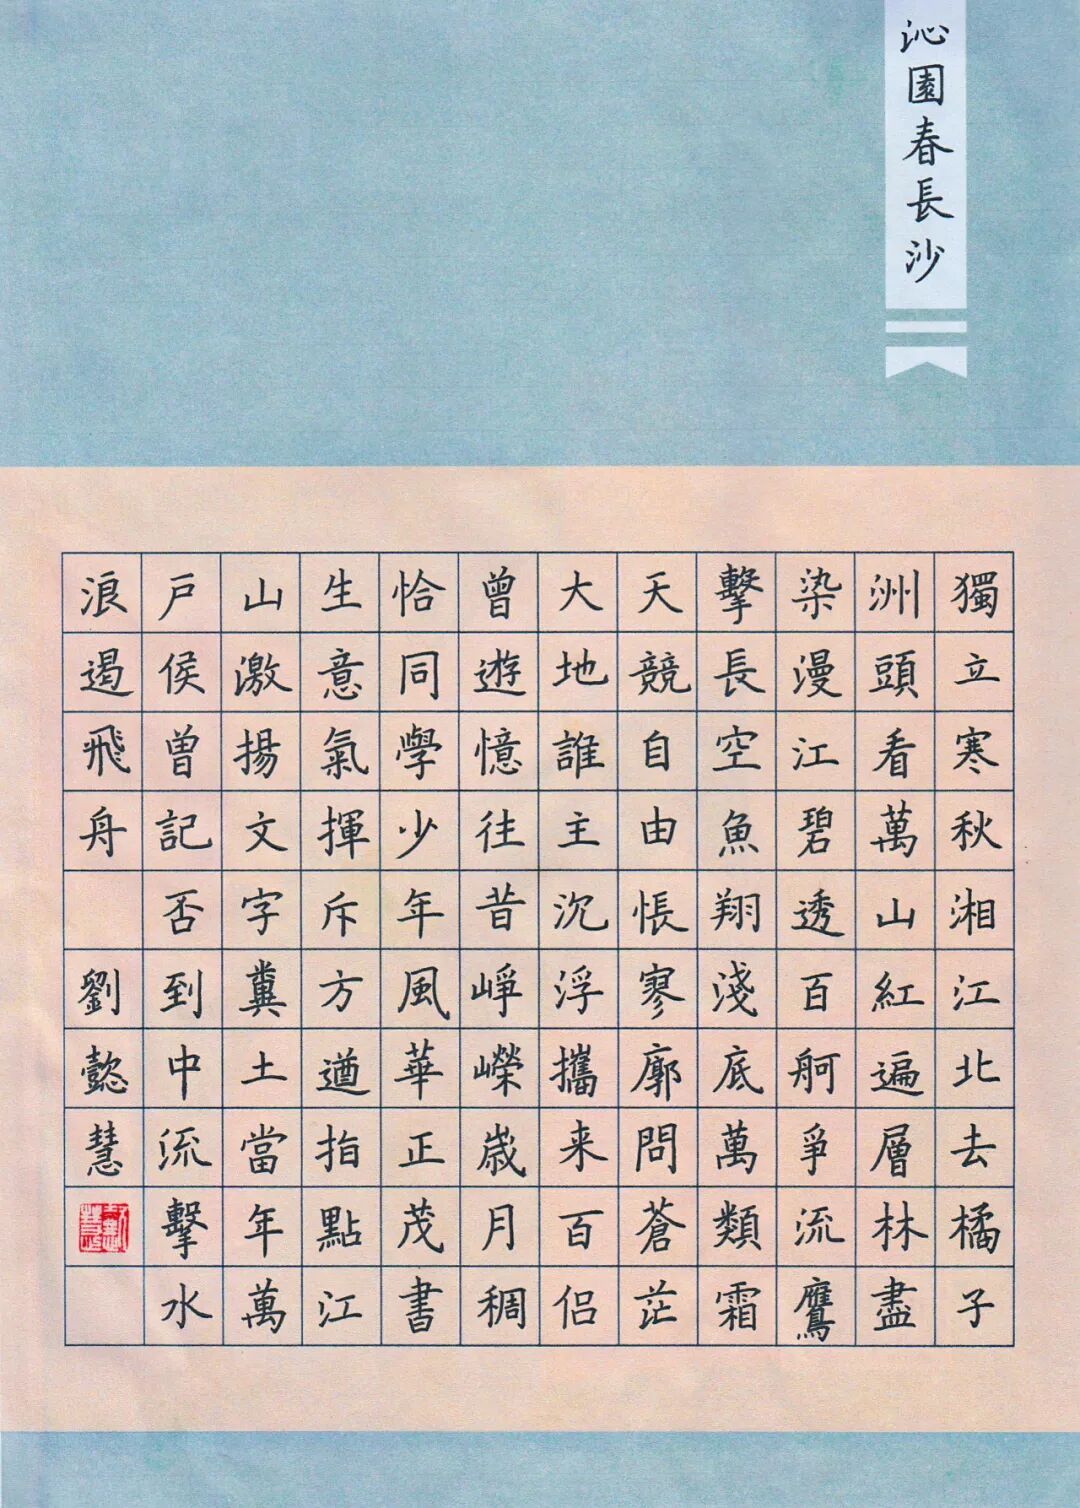 沁園春長沙
獨立寒秋湘江北去橘子
洲頭看萬山紅遍層林盡
染漫江碧透百舸爭流鷹
擊長空魚翔淺底萬類霜
天競自由悵寥廓問蒼茫
大地誰主沉浮攜来百侣
曾遊憶往昔崢嶸歲月稠
恰同學少年風華正茂書
生意氣揮斥方遒指點江
山激揚文字糞土當年萬
戶侯曾記否到中流擊水
浪遏飛舟 劉懿慧